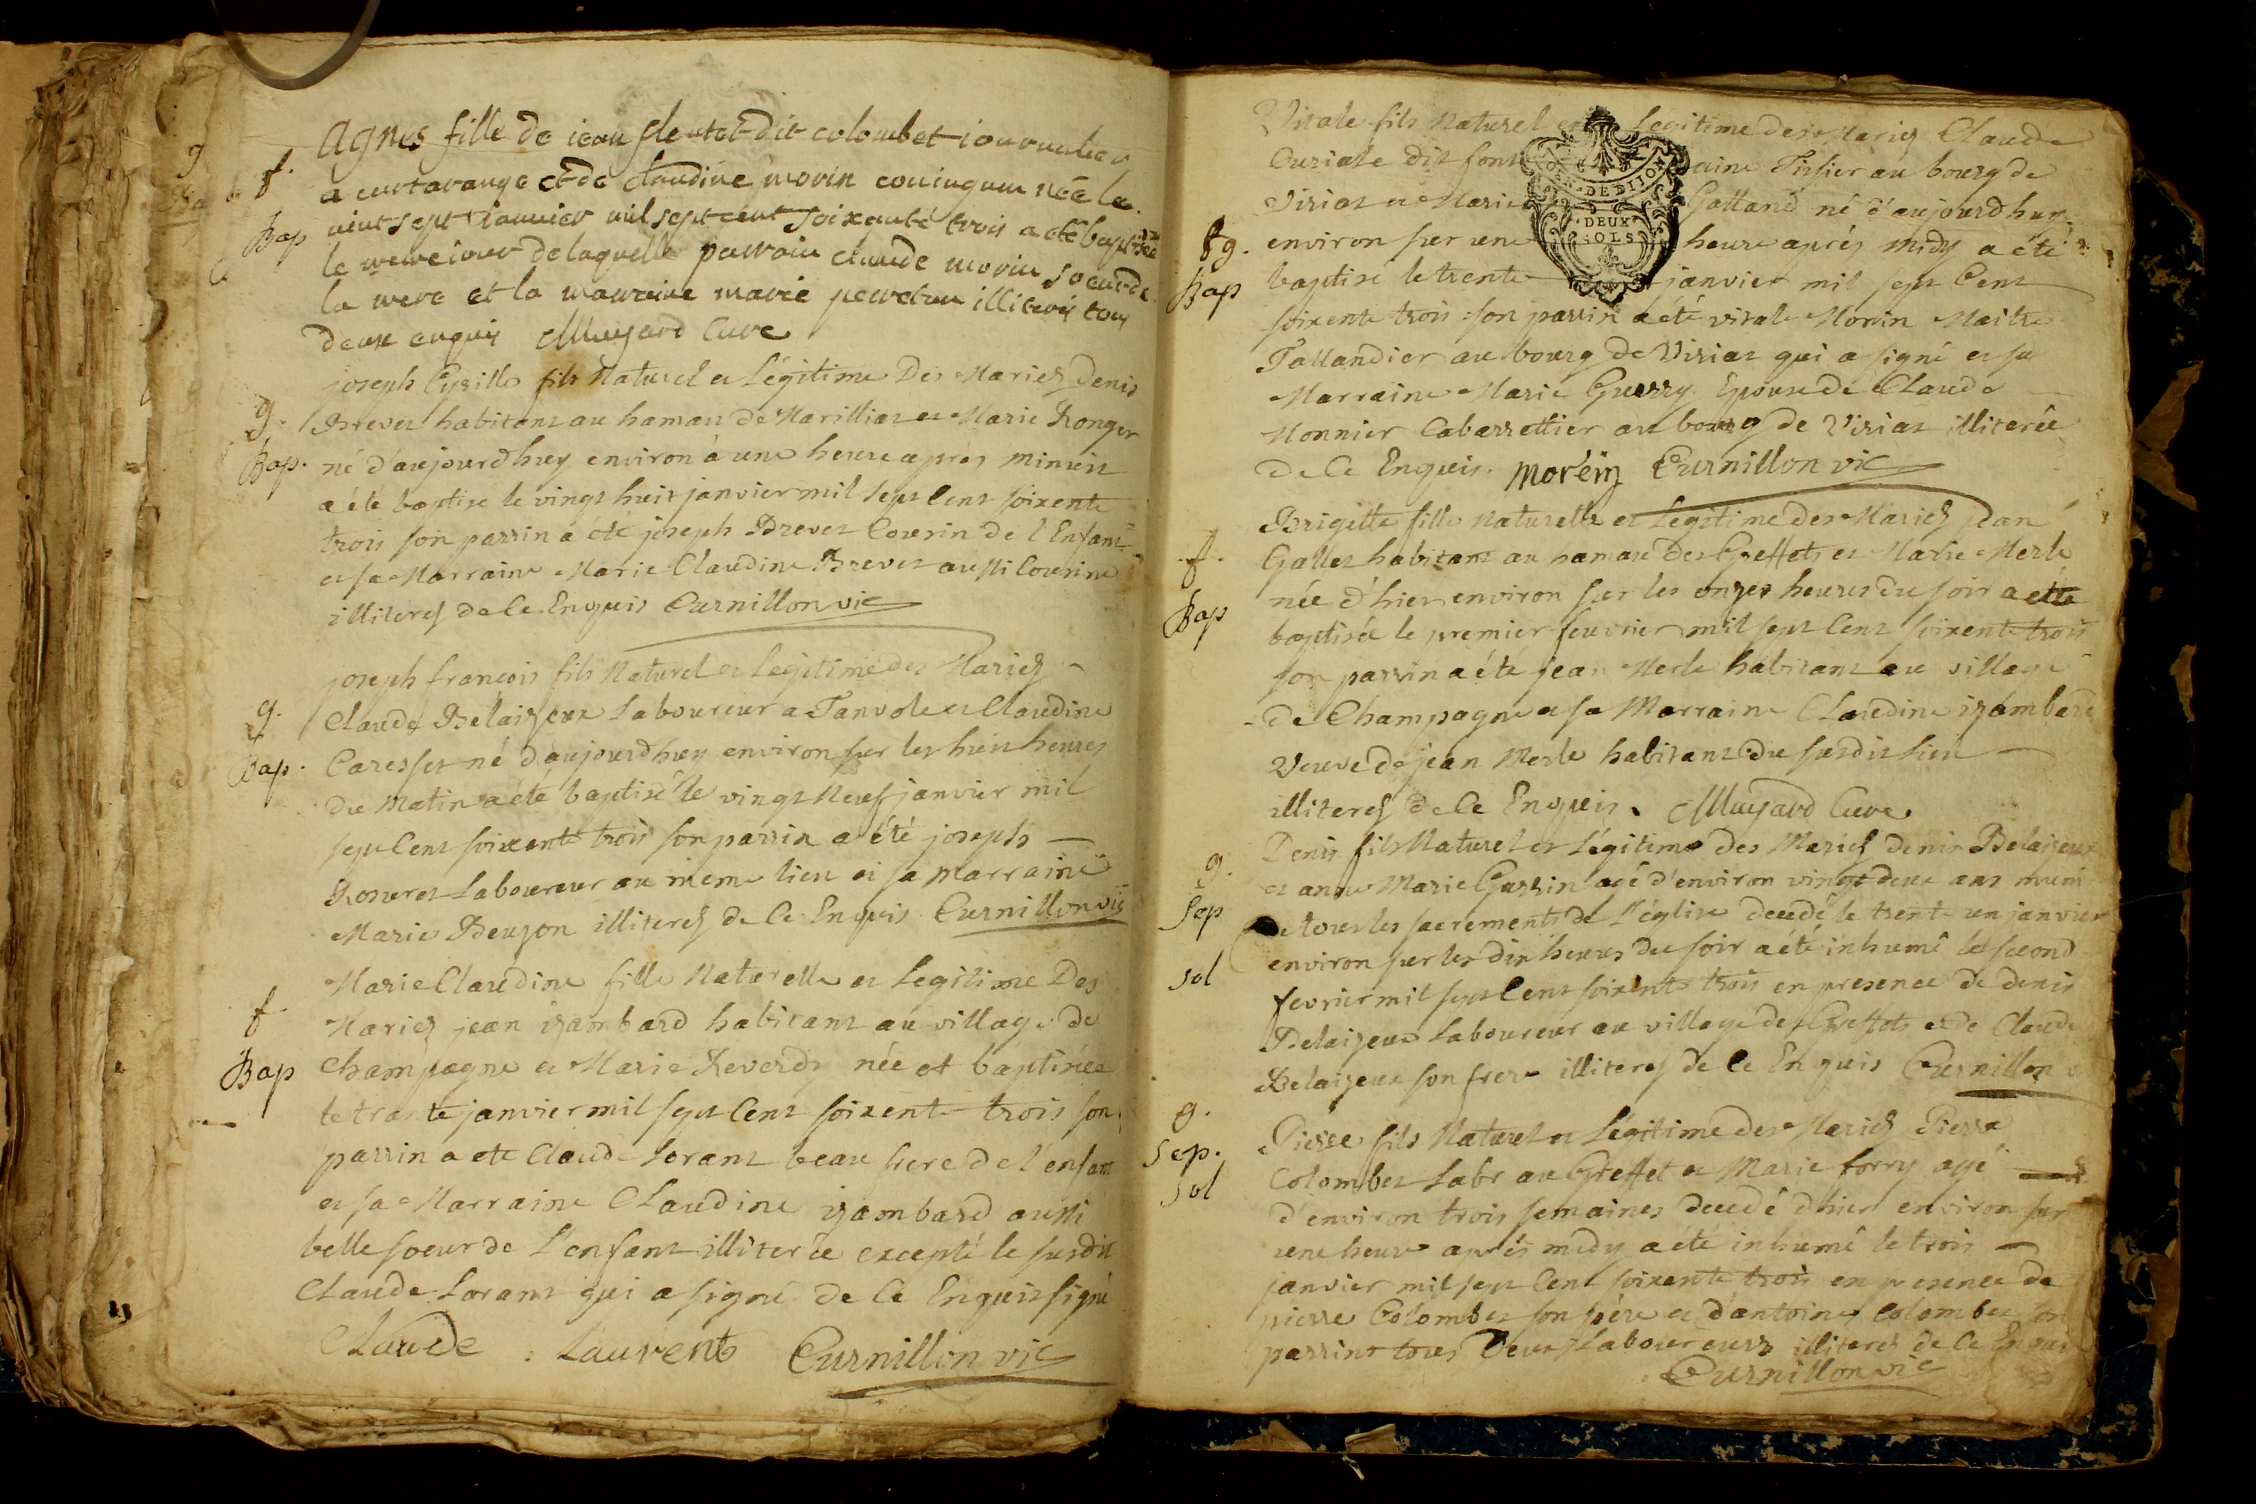 f.
Bap
Agnes fille de iean flentet dit colombet iournalier
a curtarange et de claudine morin coniugum née le
vint sept ianvier mil sept cent soixante trois a eté baptisée
le meme iour de laquelle parrain claude morin soeur de
la mere et la mauraine marie perretan illiterés tous
deux enquis Muyard Cure
g.
Bap.
joseph Cyrille fils Naturel et Légitime Des Mariez denis
Brevet habitant au hamau de Marillat et Marie Ronger
né d'aujourdhuy environ à une heure après minuit
a été baptise le vingt huit janvier mil sept Cent soixente
trois son parrin a ete joseph Brevet Cousin de l'Enfant
et sa Marraine Marie Claudine Brevet aussi Cousine
illiterez de Ce Enquis Curnillon vic
g.
Bap.
joseph francois fils Naturel et Legitime des Mariez
Claude Belaizeux Laboureur a Tanvole et Claudine
Caresset né d'aujourdhuy environ sur les huit heures
du Matin a été baptisé le vingt Neuf janvier mil
sept Cent soixente trois son parrin a été joseph
Rosuret Laboureur au meme lieu et sa Marraine
Marie Beuzon illiterez de Ce Enquis Curnillon vic
f
Bap
Marie Claudine fille Naturelle et Legitime Des
Mariez jean izambard habitant au village de
Champagne et Marie Reverdy née et baptisée
le trante janvier mil sept Cent soixente trois son
parrin a ete Claude Lorant beau frere de l'enfant
et sa Marraine Claudine izambard aussi
belle soeur de L'enfant illiterée excepté le susdit
Claude Lorant qui a signé de Ce Enquis signé
Claude Laurent Curnillon vic
fg.
Bap
Vitale fils Naturel et Légitime des Mariez Claude
Curiale dit font aine Tissier au bourg de
Viriat et Marie Galland né d'aujourdhuy
environ sur une heure après midy a été
baptisé le trente janvier mil sept Cent
soixente trois son parrin a été vitale Morin Maitre
Taillandier au bourg de Viriat qui a signé et sa
Marraine Marie Guerry Epouse de Claude
Monnier Cabarettier au bourg de Viriat illiterée
de Ce Enquis. morein Curnillon vic
COUR. DE DIJON
DEUX
SOLS
f.
Bap
Brigette fille Naturelle et Legitime des Mariez jean
Gallet habitant au hamau des Greffets et Marie Merle
née d'hier environ sur les onzes heures du soir a été
baptisée le premier feuvrier mil sept Cent soixente trois
son parrin a été jean Merle habitant au village
de Champagne et sa Marraine Claudine izambard
Veuve de jean Merle habitant du susdit lieu
illiterez de Ce Enquis. Muyard Cure
g.
Sep
sol
Denis fils Naturel et Légitime des Mariez denis Belaizeux
et anne Marie Guerrin agé d'environ vingt deux ans muni
de tous les sacrements de L'église decedé le trente un janvier
environ sur les dix heures du soir a été inhumé le second
fevrier mil sept Cent soixente trois en presence de denis
Belaizeux Laboureur au village des Greffets et de Claude
Belaizeux son frere illiterez de Ce Enquis Curnillon v
g.
Sep.
sol
Pierre fils Naturel et Légitime des Mariez Pierre
Colombet Labr au Greffet et Marie forry agé
d'environ trois semaines decedé d'hier environ sur
une heure après midy a été inhumé le trois
janvier mil sept Cent soixente trois en presence de
pierre Colombet son père et d'antoine Colombet son
parrint tous Deux Laboureurs illiterez de Ce Enquis
Curnillon vic